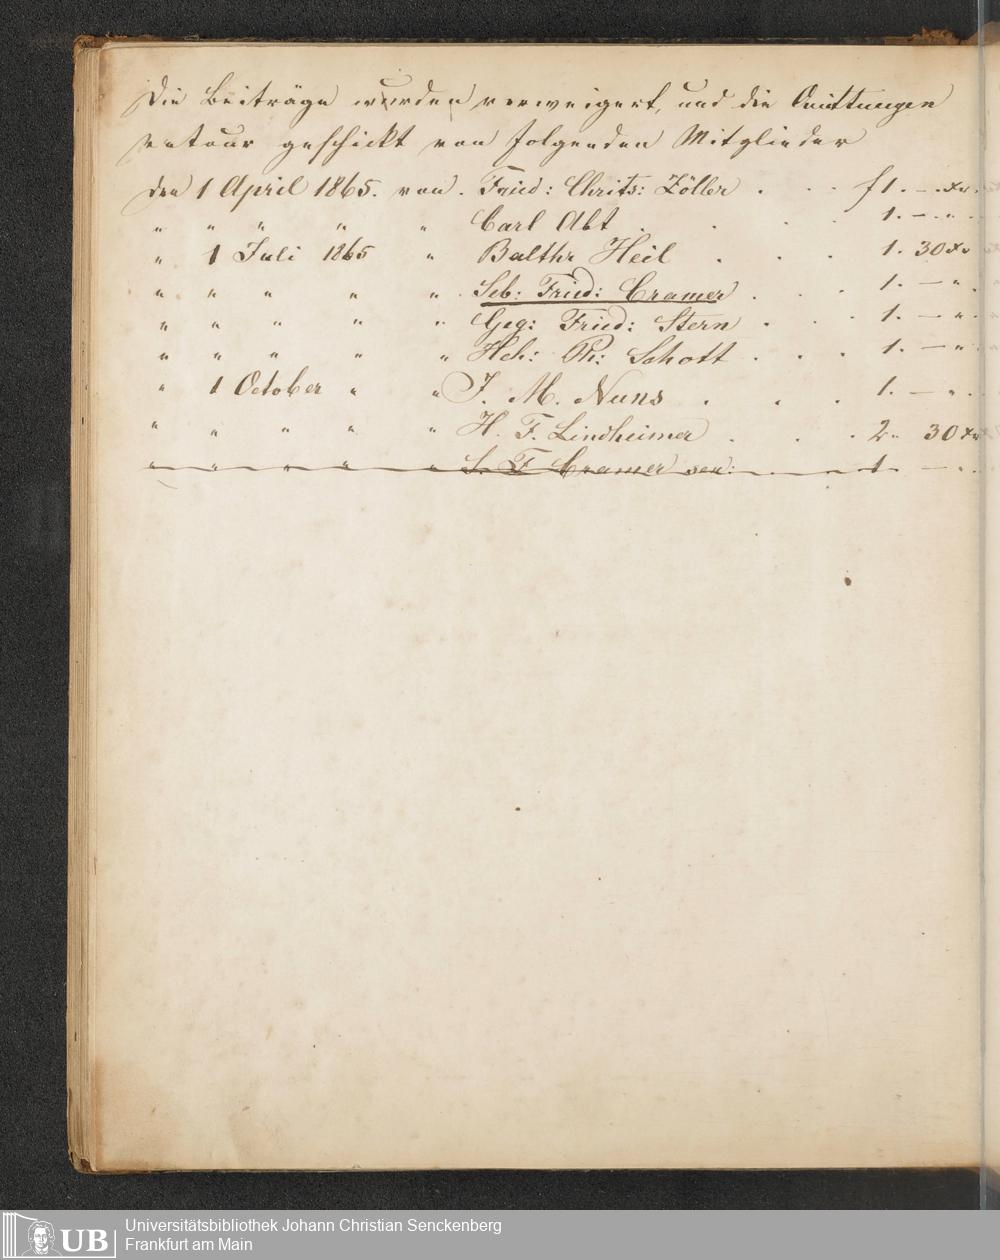 Die Beiträge wurden verweigert, und die Quittungen
retour geschickt von folgenden Mitglieder
den 1 April 1865. von. Fried: Chrits: Zöller . . . f 1. – . xr.
" " " " " Carl Abt . . . . 1. – . "
" 1 Juli 1865 " Balthr Heil . . . 1. 30 xr
" " " " " Seb: Fried: Cramer . . . 1. – " .
" " " " " Geg: Fried: Stern . . . 1. – " .
" " " " " Hch: Ph: Schott . . . 1. – "
" 1 October " " J. M. Nuns . . . 1. – " .
" " " " " H. F. Lindheimer . . . 2 " 30 xr
" " " " " S. F Cramer sen: . . . 1. – " .
UB Universitätsbibliothek Johann Christian Senckenberg
Frankfurt am Main